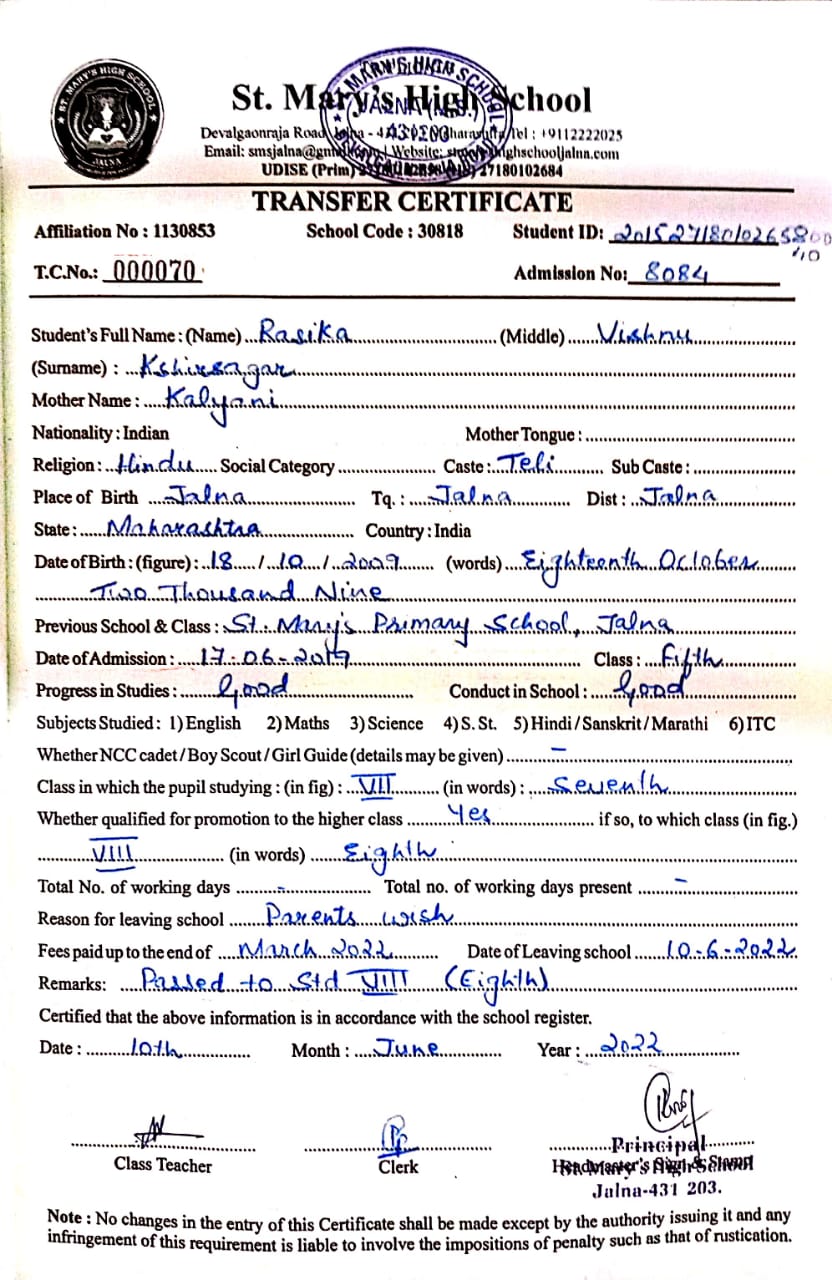 ST. MARY'S HIGH SCHOOL
JALNA
St. Mary's High School
Devalgaonraja Road, Jalna - Tel : +9112222025
Email: Website: highschooljalna.com
UDISE (Prim) 27180102684
TRANSFER CERTIFICATE
Affiliation No : 1130853 School Code : 30818 Student ID:
T.C.No.: 000070 Admission No: 8084
Student's Full Name : (Name) Rasika (Middle) Vishnu
(Surname) : Kshirsagar
Mother Name : Kalyani
Nationality : Indian Mother Tongue :
Religion : Hindu Social Category Caste : Teli Sub Caste :
Place of Birth Jalna Tq. : Jalna Dist : Jalna
State : Maharashtra Country : India
Date of Birth : (figure) : 18 / 10 / 2009 (words) Eighteenth October
Two Thousand Nine
Previous School & Class : St. Mary's Primary School, Jalna
Date of Admission : 17-06-2019 Class : Fifth
Progress in Studies : Good Conduct in School : Good
Subjects Studied : 1) English 2) Maths 3) Science 4) S. St. 5) Hindi / Sanskrit / Marathi 6) ITC
Whether NCC cadet / Boy Scout / Girl Guide (details may be given) -
Class in which the pupil studying : (in fig) : VII (in words) : Seventh
Whether qualified for promotion to the higher class Yes if so, to which class (in fig.)
VIII (in words) Eighth
Total No. of working days - Total no. of working days present -
Reason for leaving school Parents wish
Fees paid up to the end of March 2022 Date of Leaving school 10-6-2022
Remarks: Passed to Std VIII (Eighth)
Certified that the above information is in accordance with the school register.
Date : 10th Month : June Year : 2022
Class Teacher Clerk Principal
Jalna-431 203.
Note : No changes in the entry of this Certificate shall be made except by the authority issuing it and any
infringement of this requirement is liable to involve the impositions of penalty such as that of rustication.